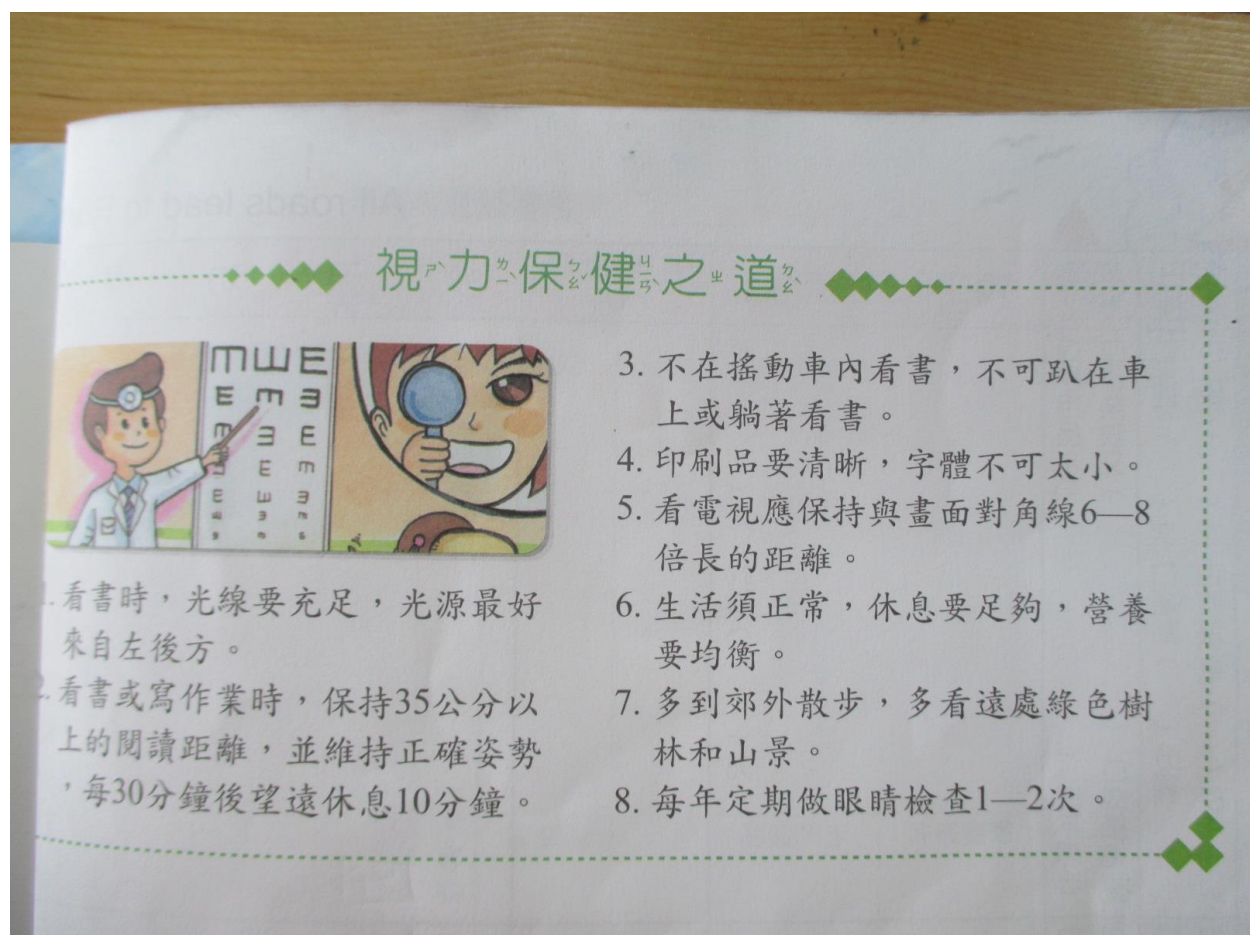 視力保健之道
1.看書時，光線要充足，光源最好
來自左後方。
2.看書或寫作業時，保持35公分以
上的閱讀距離，並維持正確姿勢
，每30分鐘後望遠休息10分鐘。
3. 不在搖動車內看書，不可趴在車
上或躺著看書。
4. 印刷品要清晰，字體不可太小。
5. 看電視應保持與畫面對角線6—8
倍長的距離。
6. 生活須正常，休息要足夠，營養
要均衡。
7. 多到郊外散步，多看遠處綠色樹
林和山景。
8. 每年定期做眼睛檢查1—2次。